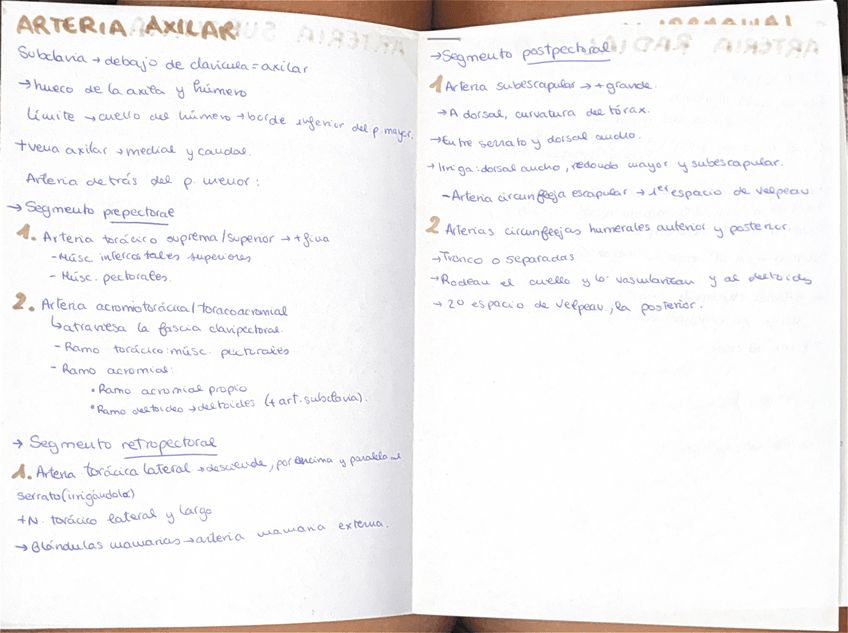 ARTERIA AXILAR
Subclavia → debajo de clavícula = axilar
→ hueco de la axila y húmero
Límite → cuello del húmero → borde inferior del p. mayor.
+ vena axilar → medial y caudal.
Arteria detrás del p. menor:
→ Segmento prepectoral
1. Arteria torácico suprema/superior → + fina
- Músc intercostales superiores
- Músc. pectorales.
2. Arteria acromiotorácica/toracoacromial
↳ atraviesa la fascia clavipectoral.
- Ramo torácico: músc. pectorales
- Ramo acromial:
• Ramo acromial propio
• Ramo deltoideo → deltoides (+ art. subclavia).
→ Segmento retropectoral
1. Arteria torácica lateral → desciende, por encima y paralela al
serrato (irrigándolo)
+ N. torácico lateral y largo
→ Glándulas mamarias → arteria mamaria externa.
→ Segmento postpectoral
1 Arteria subescapular → + grande.
→ A dorsal, curvatura del tórax.
→ Entre serrato y dorsal ancho.
→ Irriga: dorsal ancho, redondo mayor y subescapular.
- Arteria circunfleja escapular → 1er espacio de velpeau.
2 Arterias circunflejas humerales anterior y posterior.
→ Tronco o separadas
→ Rodean el cuello y lo vascularizan y al deltoides
→ 2º espacio de velpeau, la posterior.